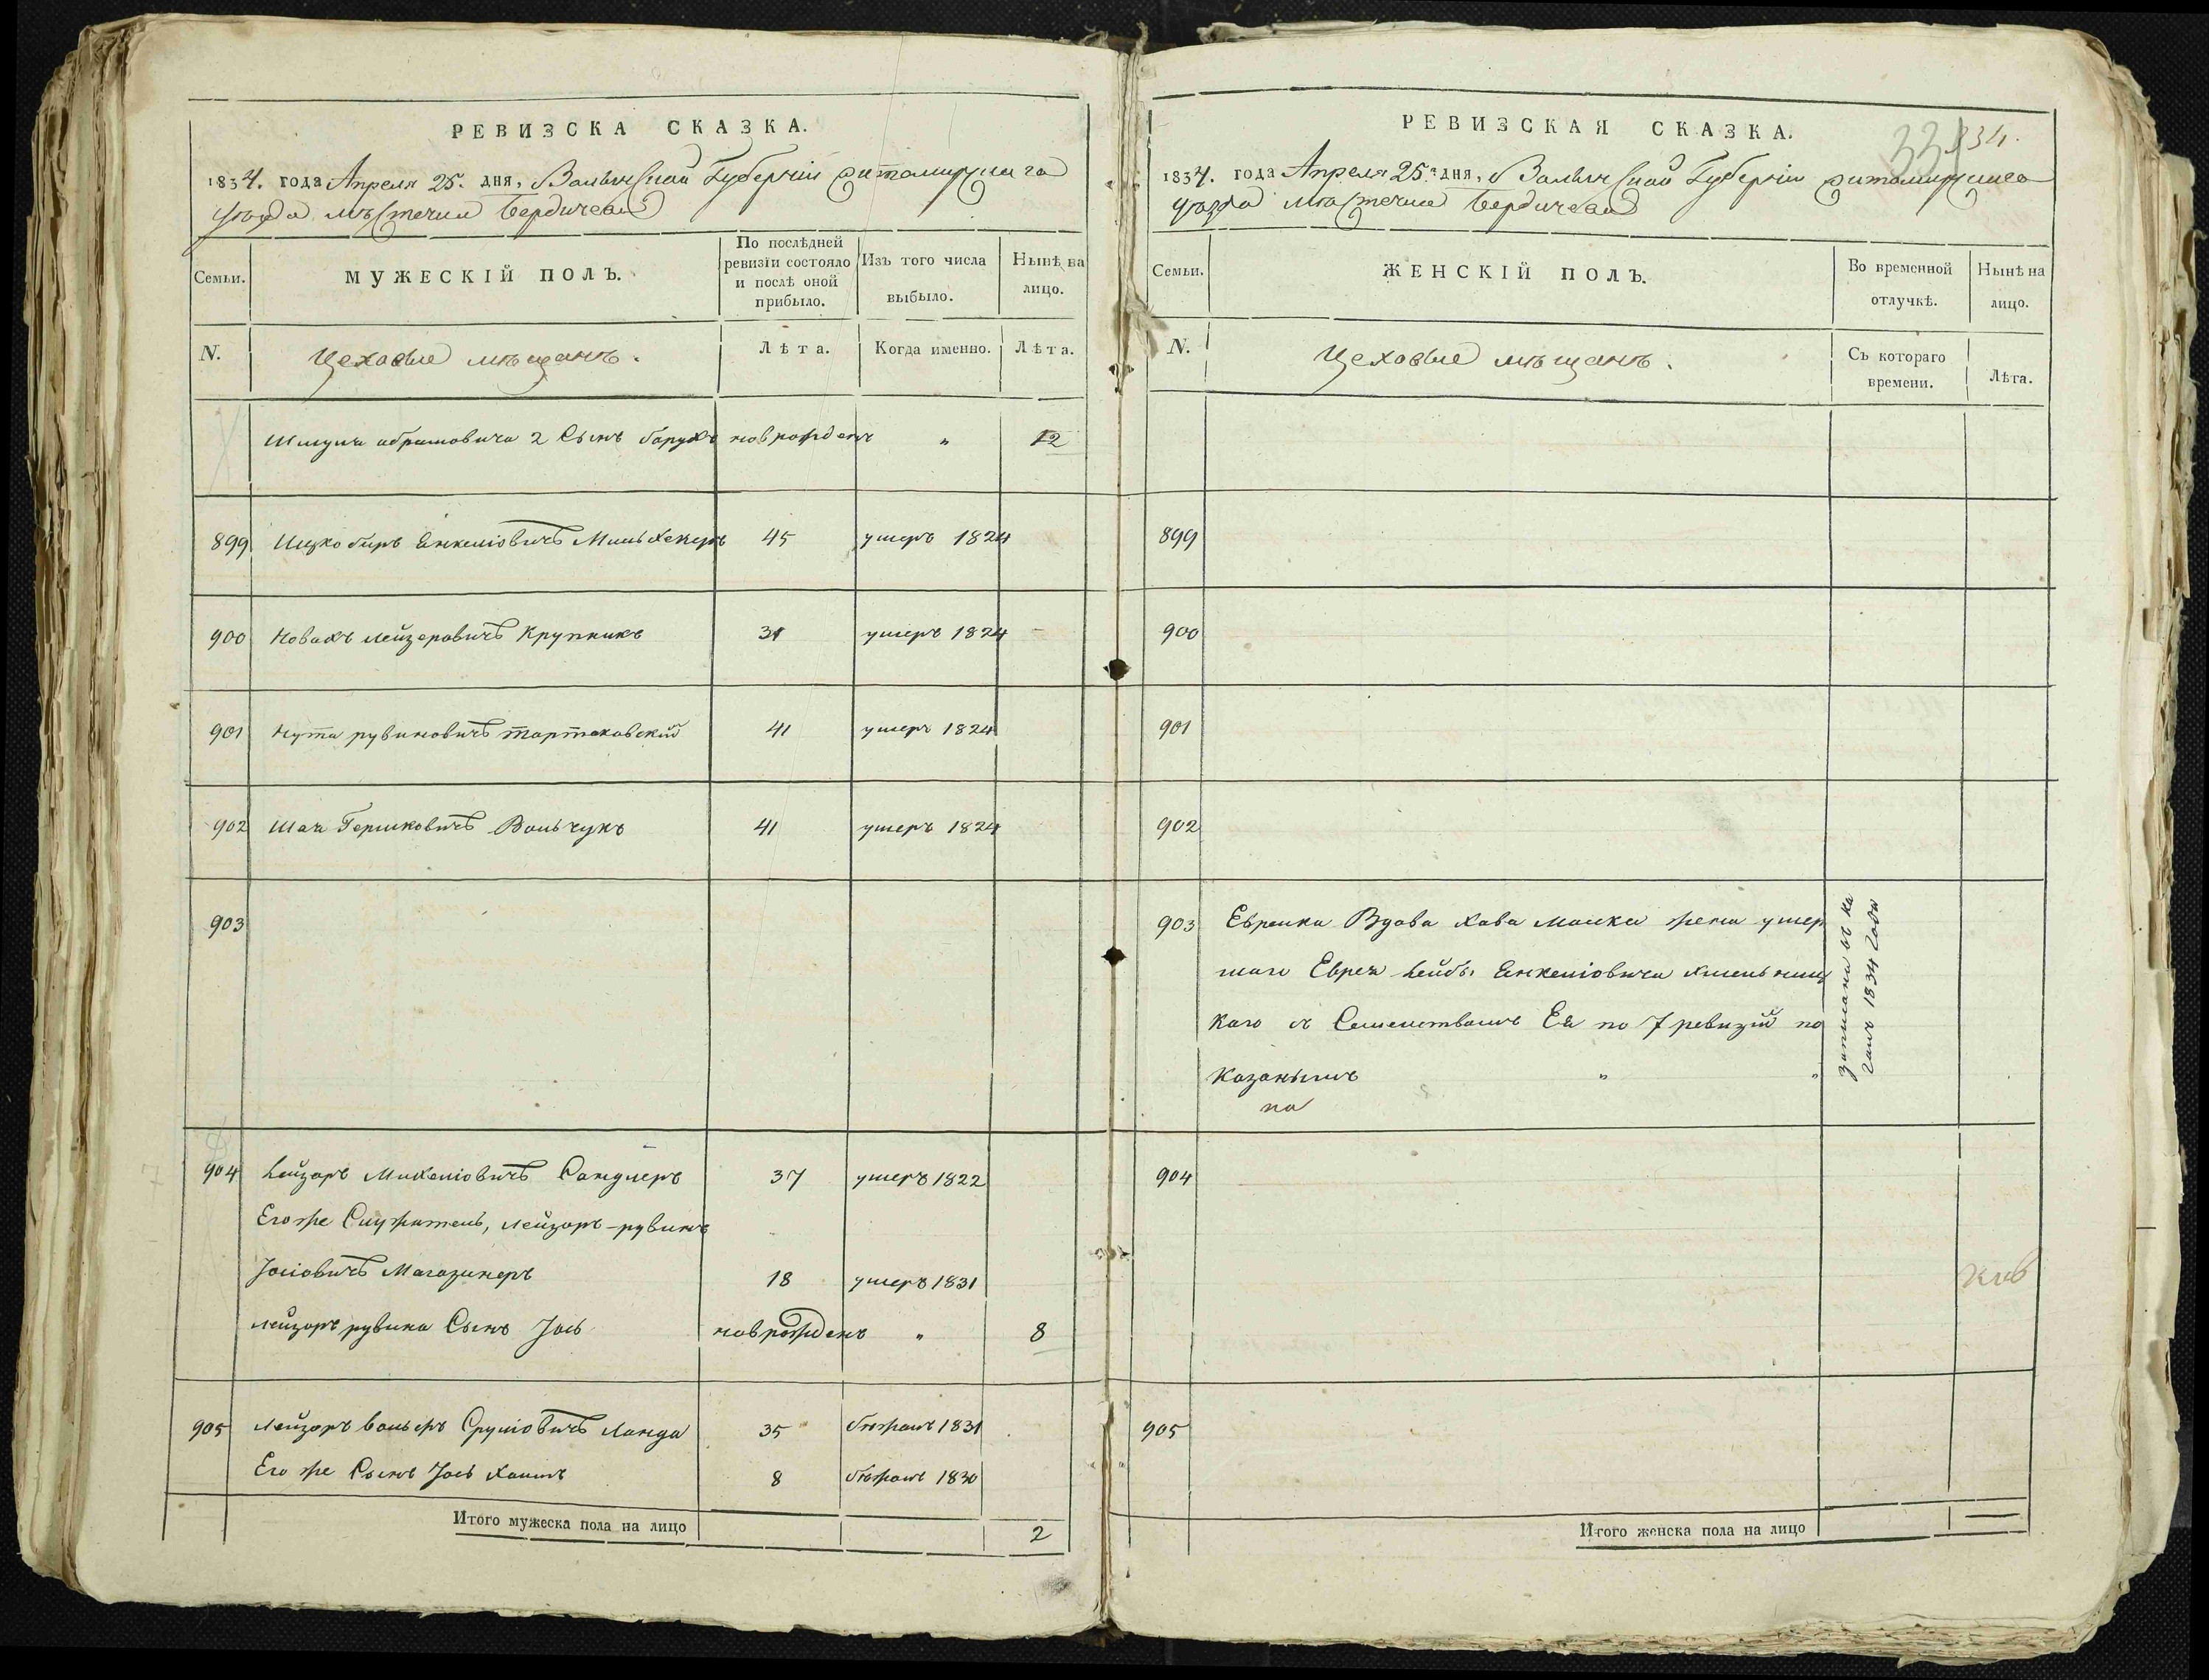 РЕВИЗСКА СКАЗКА.
1834. года Апреля 25. дня, Волынской Губерніи Житомирскаго
уѣзда мѣстечка Бердичева
Семьи.
МУЖЕСКІЙ ПОЛЪ.
По послѣдней ревизіи состояло и послѣ оной прибыло.
Изъ того числа выбыло.
Нынѣ на лицо.
N.
Цеховые мѣщанъ.
Лѣта.
Когда именно.
Лѣта.
Шмуля абрамовича 2 Сынъ барухъ новрожденъ „ 12
899 Ицко биръ Янкеліовичъ 45 умеръ 1824
900 Новахъ лейзеровичъ Крупникъ 31 умеръ 1824
901 Нута рувиновичъ тартаковскій 41 умеръ 1824
902 Шая Гершковичъ Вольчукъ 41 умеръ 1824
903
904 Лейзоръ Михеліовичъ Сандлеръ 37 умеръ 1822
Егоже Служитель, лейзоръ-рувинъ
Іосіовичъ Магазинеръ 18 умеръ 1831
лейзоръ рувина Сынъ Іось новрожденъ „ 8
905 лейзоръ вольфъ Сруліовичъ Ланда 35 бѣжалъ 1831
Его же Сынъ Іось хаимъ 8 бѣжалъ 1830
Итого мужеска пола на лицо 2
РЕВИЗСКАЯ СКАЗКА.
334.
1834. года Апреля 25. дня, Волынской Губерніи Житомирскаго
уѣзда мѣстечка Бердичева
Семьи.
ЖЕНСКІЙ ПОЛЪ.
Во временной отлучкѣ.
Нынѣ на лицо.
N.
Цеховые мѣщанъ.
Съ котораго времени.
Лѣта.
899
900
901
902
903 Еврейка Вдова хава малка жена умер
шаго Еврея Лейбы Янкеліовича хмельниц
каго съ Семействомъ Ея по 7 ревизій по
казанымъ „ „
по
записана въ ка
галъ 1834 года
904
905
Итого женска пола на лицо —